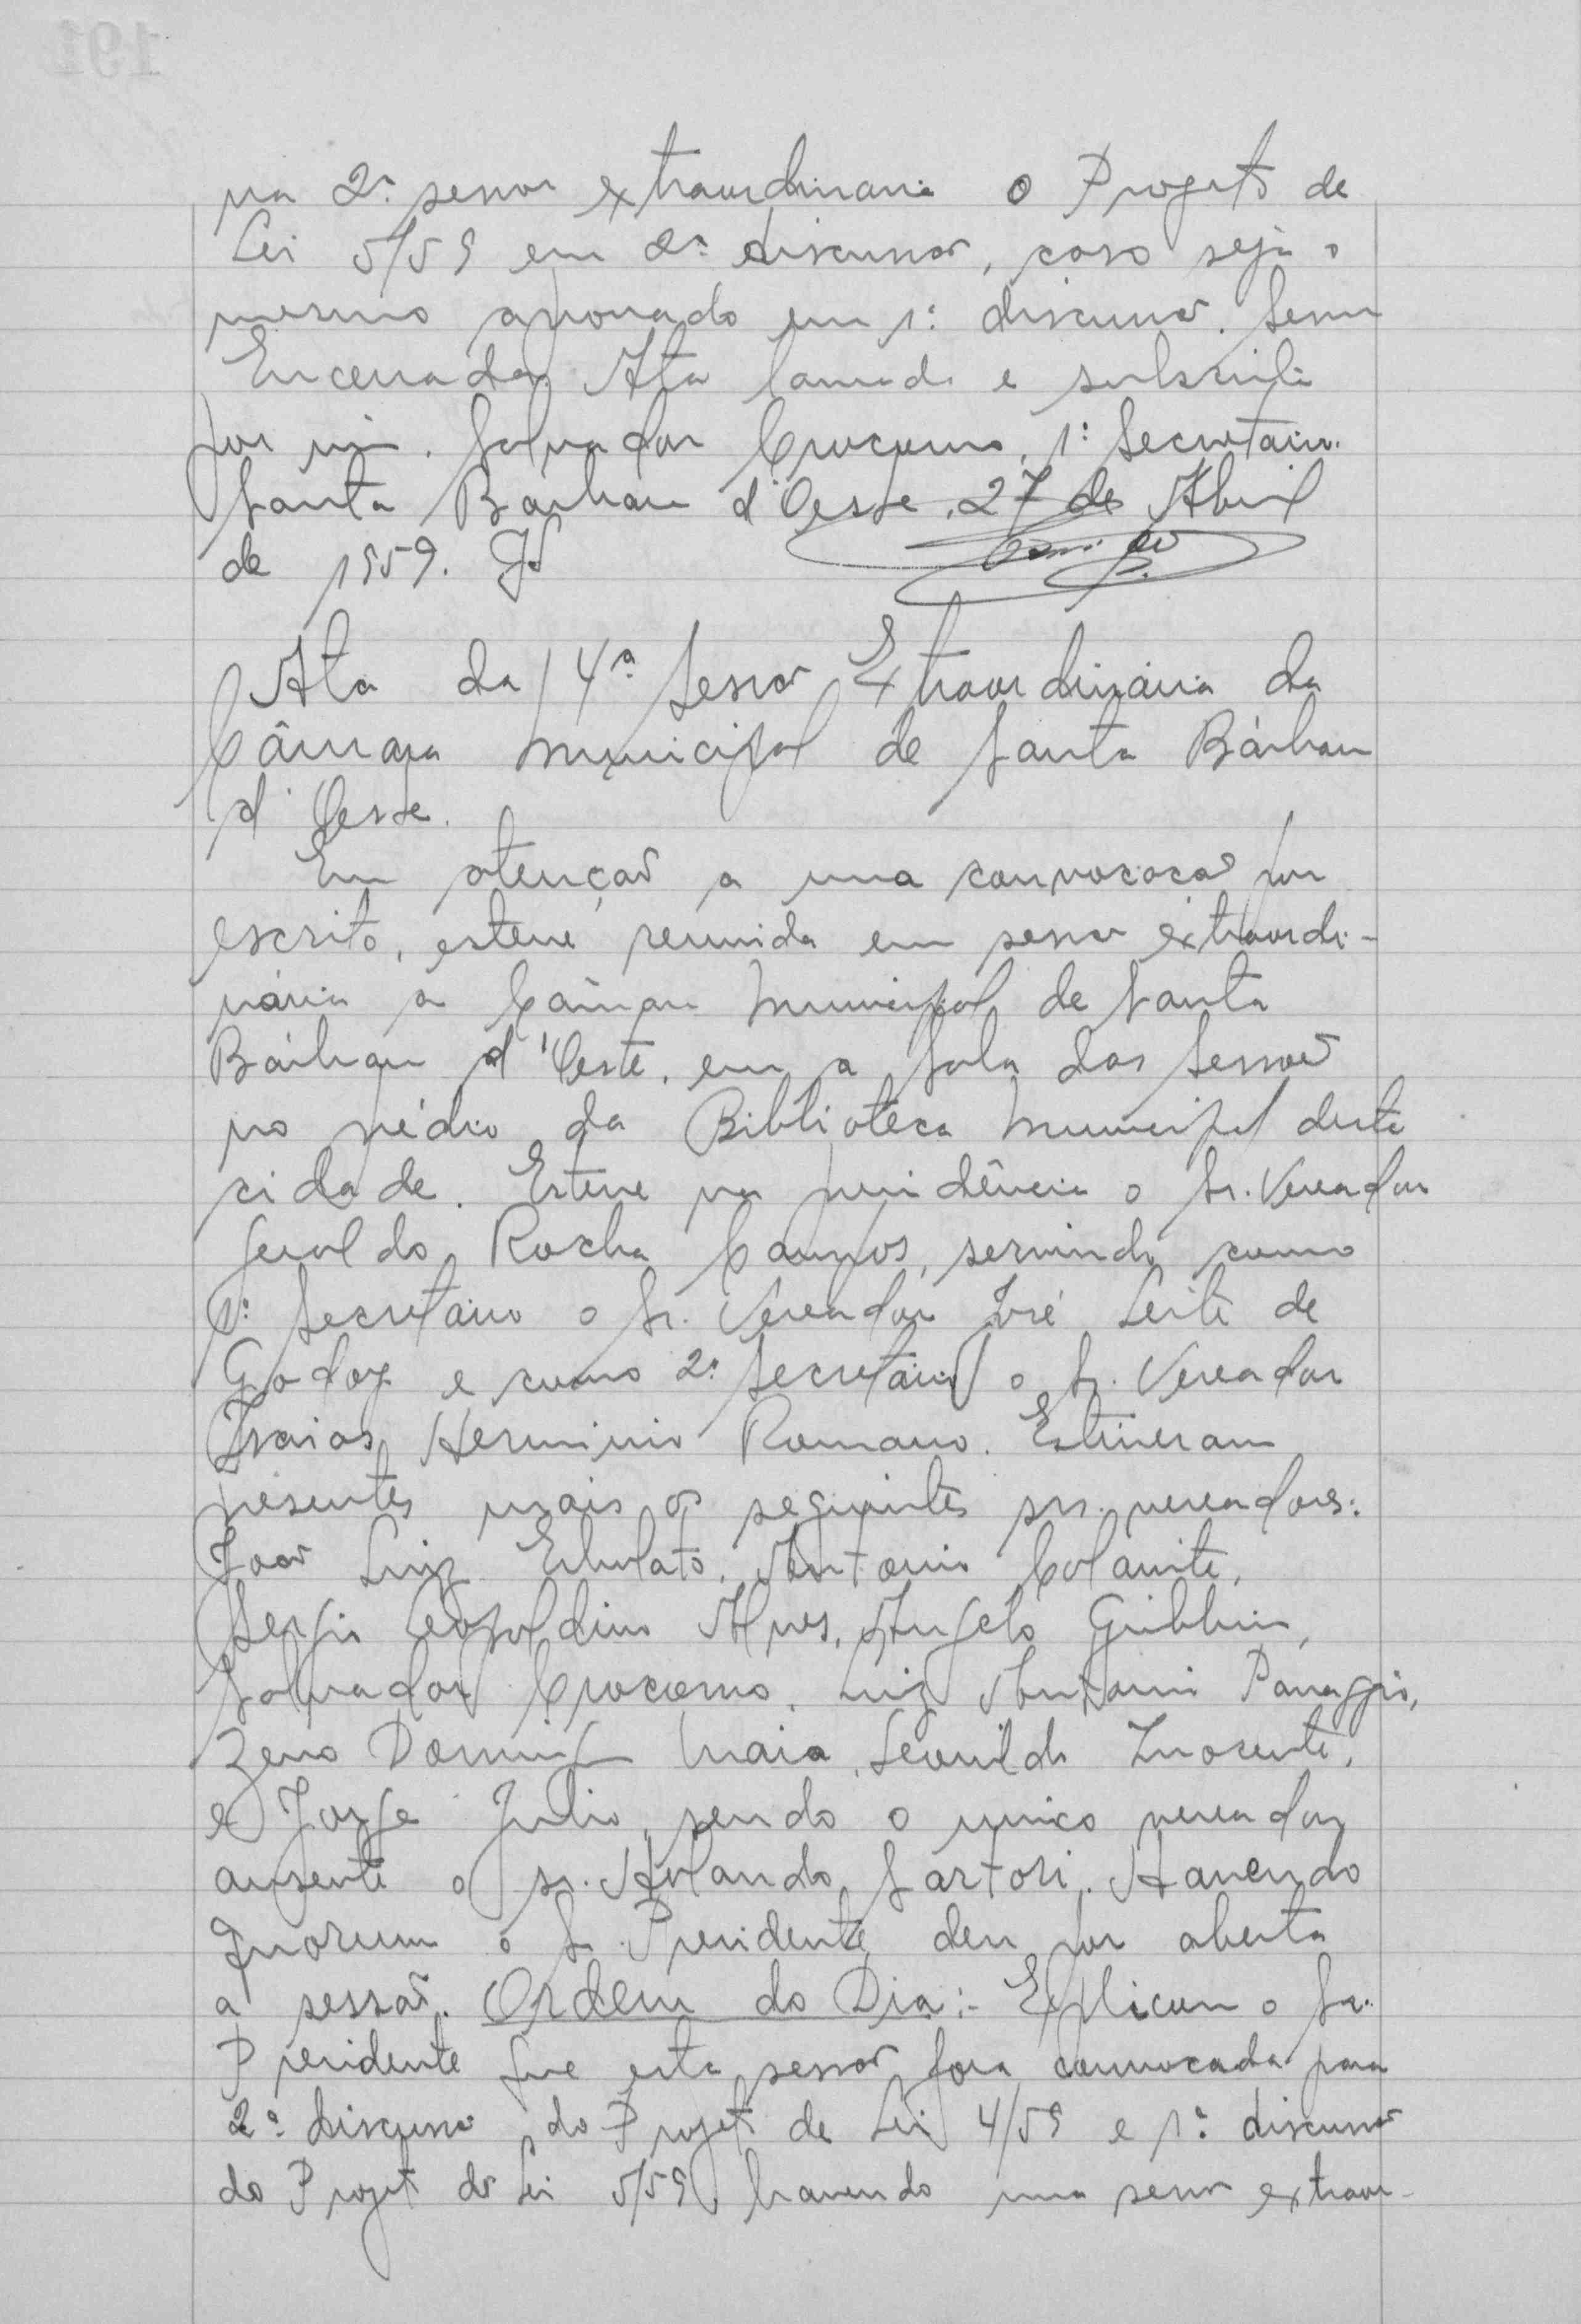 na 2ª sessão extraordinaria o Projeto de
Lei 5/59 em 2ª discussão, caso seja o
mesmo aprovado em 1ª discussão.
Encerrada Ata lavrada e subscrita
por mim. Salvador Crocomo, 1º Secretário.
Santa Bárbara d'Oeste, 27 de Abril
de 1959.
Ata da 4ª Sessão Extraordinária da
Câmara Municipal de Santa Bárbara
d'Oeste.
Em atenção a uma convocação por
escrito, esteve reunida em sessão extraordi-
nária a Câmara Municipal de Santa
Bárbara d'Oeste, em a Sala das Sessões
no prédio da Biblioteca Municipal desta
cidade. Esteve na presidência o Sr. Vereador
Geraldo Rocha Campos, servindo como
1º Secretário o Sr. Vereador José Leite de
Godoy e como 2º Secretário o Sr. Vereador
Izaias Herminio Romano. Estiveram
presentes mais os seguintes srs. vereadores:
João Luiz, Antonio Colamite,
Sergio Leopoldino Alves, Angelo Giubbina,
Salvador Crocomo, Luiz Antonio Panaggio,
Zeno Domingos Maia, Leonildo Inocente,
e Jorge Julio, sendo o unico vereador
ausente o sr. Orlando Sartori. Havendo
quorum o Sr. Presidente deu por aberta
a sessão. Ordem do Dia:- Explicou o Sr.
Presidente que esta sessão fora convocada para
2ª discussão do Projeto de Lei 4/59 e 1ª discussão
do Projeto de Lei 5/59, havendo uma sessão extraor-